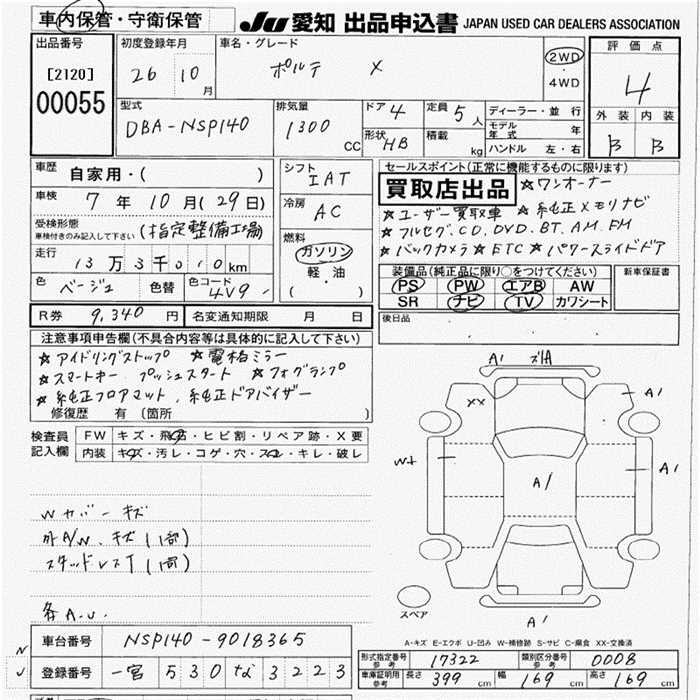 車内保管・守衛保管
JU 愛知 出品申込書 JAPAN USED CAR DEALERS ASSOCIATION
出品番号
[2120]
00055
初度登録年月
26 10月
車名・グレード
ポルテ X
2WD
4WD
評価点
4
外装 内装
B B
型式
DBA-NSP140
排気量
1300 CC
ドア 4
形状 HB
定員 5人
積載 kg
ディーラー・並行
モデル年式 年
ハンドル 左・右
車歴
自家用・( )
車検
7年10月(29日)
受検形態
車検付きのみ記入して下さい
(指定整備工場)
走行
13万3千010km
色 ベージュ 色替
色コード 4V9
シフト
IAT
冷房
AC
燃料
ガソリン
軽・油
( ・ )
セールスポイント(正常に機能するものに限ります)
買取店出品
☆ワンオーナー
☆ユーザー買取車 ☆純正メモリナビ
☆フルセグ.CD.DVD.BT.AM.FM
☆バックカメラ ☆ETC ☆パワースライドドア
装備品(純正品に限り○をつけてください)
PS PW エアB AW
SR ナビ TV カワシート
新車保証書
後日品
R券 9,340円
名変通知期限 月 日
注意事項申告欄(不具合内容等は具体的に記入して下さい)
☆アイドリングストップ ☆電格ミラー
☆スマートキー プッシュスタート ☆フォグランプ
☆純正フロアマット、純正ドアバイザー
修復歴 有 (箇所 )
検査員記入欄
FW キズ・飛石・ヒビ割・リペア跡・X要
内装 キズ・汚レ・コゲ・穴・スレ・キレ・破レ
Wカバーキズ
外A/W.キズ(1部)
スタッドレスT(1部)
各A.U.
A1
XX
A1
W+
A1
A1
A1
スペア
A-キズ E-エクボ U-凹み W-補修跡 S-サビ C-腐食 XX-交換済
車台番号 NSP140-9018365
登録番号 一宮 530 な 3223
形式指定番号 参考 17322
類別区分番号 参考 0008
車庫証明用 参考 長さ 399 cm 幅 169 cm 高さ 169 cm